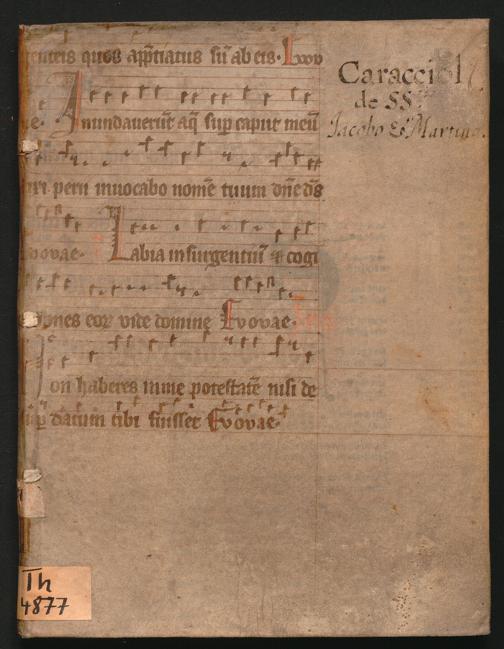 quos app̄tiatus sūt ab eis. Evov
Inundaveru͞t aq̄ sup caput meū
peru invocabo nomē tuum dn̄e d̄s
vovae. Labia insurgentiū & cogi
eoꝝ vide domine Evovae.
on haberes in me potestatē nisi de
datum tibi fuisset Evovae.
Caraccioli
de SS.
Jacobo Et Martino.
Th
4877